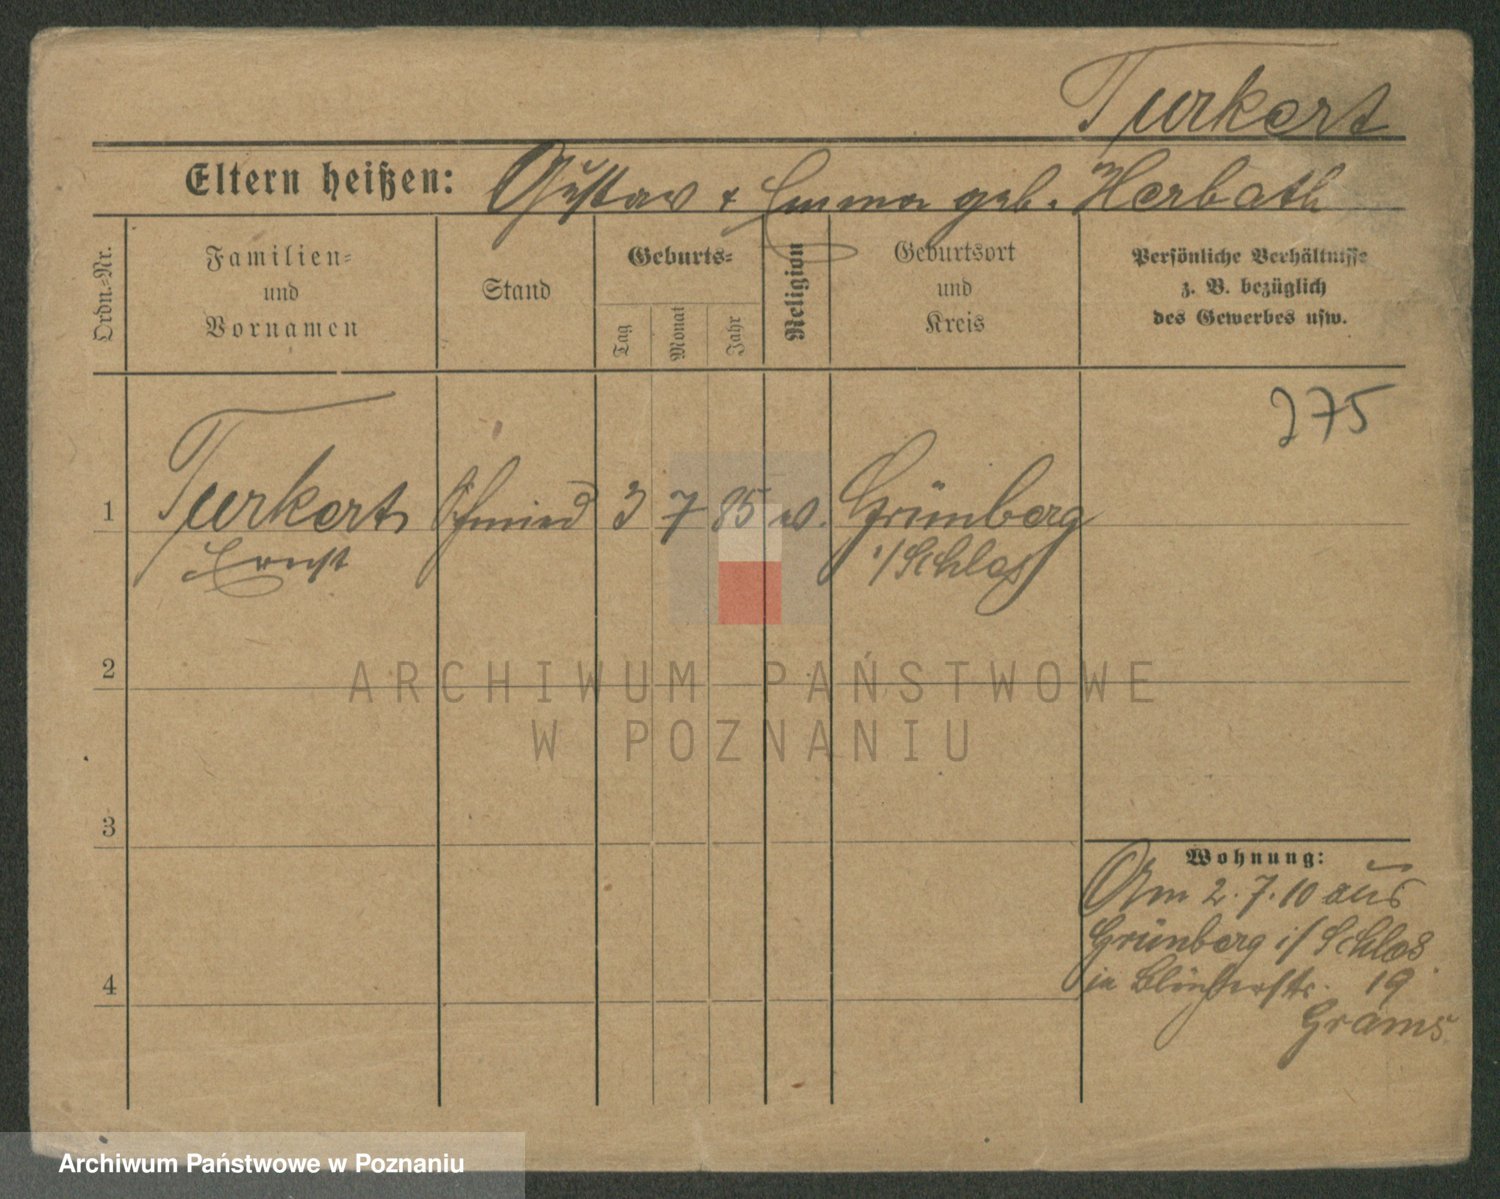 Turkert
Eltern heißen: Gustav + Emma geb. Herbath
Ordn.=Nr.
Familien=
und
Vornamen
Stand
Geburts=
Tag
Monat
Jahr
Religion
Geburtsort
und
Kreis
Persönliche Verhältnisse
z. B. bezüglich
des Gewerbes usw.
275
1 Turkert Schmied 3 7 85 Grünberg
Ernst i/Schles
2
ARCHIWUM PAŃSTWOWE
W POZNANIU
3
Wohnung:
Am 2. 7. 10 aus
Grünberg i/Schles.
in Blücherstr. 19
4
Grams
Archiwum Państwowe w Poznaniu